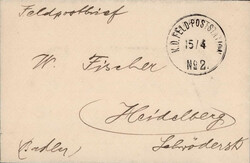 Feldpostbrief
K.D. FELD-POSTSTATION
15/4
No 2.
W. Fischer
Heidelberg